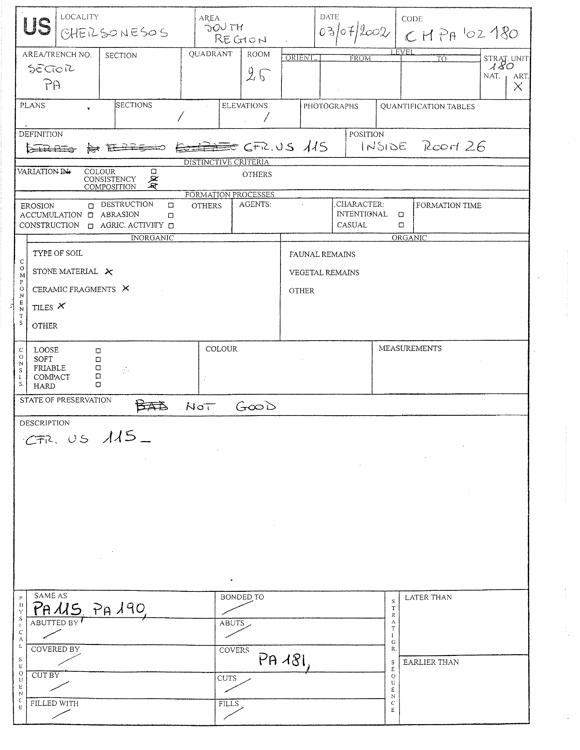 US
LOCALITY
CHERSONESOS
AREA
SOUTH
REGION
DATE
03/07/2002
CODE
CH PA '02 180
AREA/TRENCH NO.
SECTOR
PA
SECTION
QUADRANT
ROOM
26
LEVEL
ORIENT. FROM TO
STRAT. UNIT
180
NAT. ART.
X
PLANS
SECTIONS
/
ELEVATIONS
/
PHOTOGRAPHS
QUANTIFICATION TABLES
DEFINITION
CFR. US 115
POSITION
INSIDE ROOM 26
DISTINCTIVE CRITERIA
VARIATION IN
COLOUR
CONSISTENCY
COMPOSITION
OTHERS
FORMATION PROCESSES
EROSION DESTRUCTION OTHERS
ACCUMULATION ABRASION
CONSTRUCTION AGRIC. ACTIVITY
AGENTS:
CHARACTER:
INTENTIONAL
CASUAL
FORMATION TIME
COMPONENTS
INORGANIC
TYPE OF SOIL
STONE MATERIAL X
CERAMIC FRAGMENTS X
TILES X
OTHER
ORGANIC
FAUNAL REMAINS
VEGETAL REMAINS
OTHER
CONSIS.
LOOSE
SOFT
FRIABLE
COMPACT
HARD
COLOUR
MEASUREMENTS
STATE OF PRESERVATION
BAD NOT GOOD
DESCRIPTION
CFR. US 115_
PHYSICAL SEQUENCE
SAME AS
PA 115, PA 190,
BONDED TO
/
ABUTTED BY
/
ABUTS
/
COVERED BY
/
COVERS
PA 181,
CUT BY
/
CUTS
/
FILLED WITH
/
FILLS
/
STRATIGR. SEQUENCE
LATER THAN
EARLIER THAN